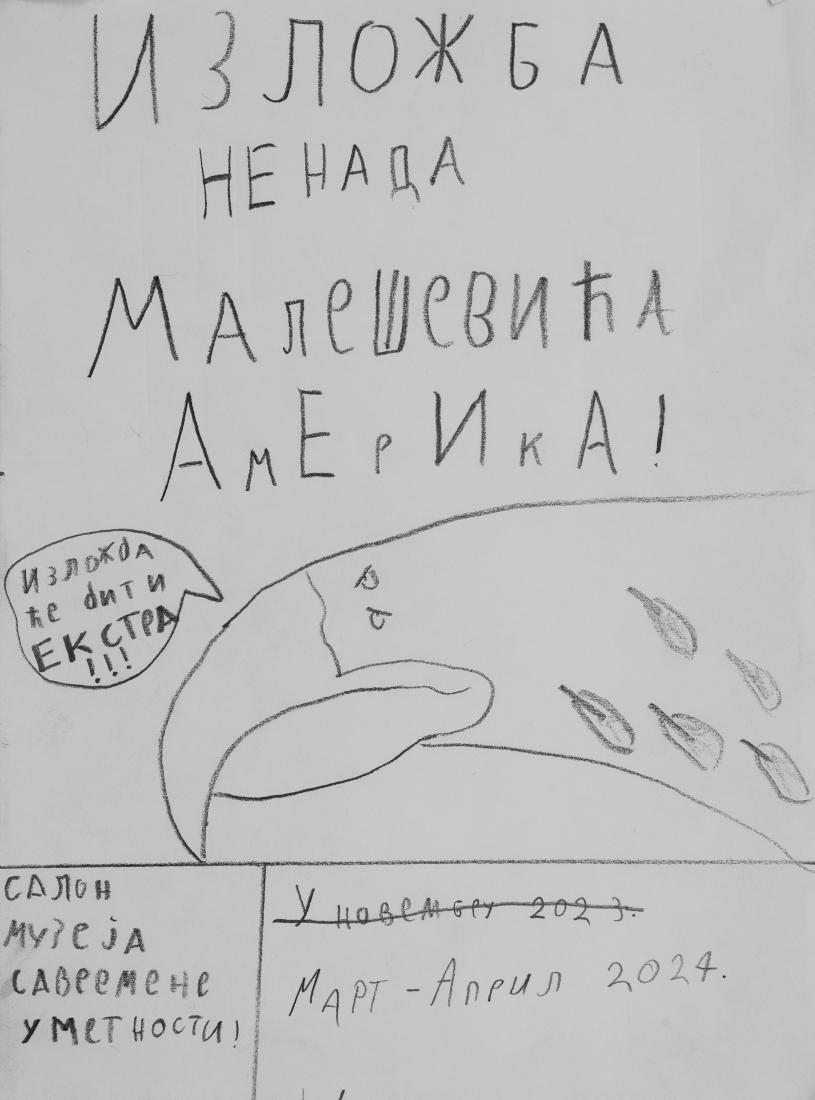 ИЗЛОЖБА
НЕНАДА
МАЛЕШЕВИЋА
АмЕрИкА!
ИЗЛОЖбА
ћЕ бИТИ
ЕКСТРА
!!!
САЛОН
МУЗЕЈА
САВРЕМЕНЕ
УМЕТНОСТИ!
У НОВЕМБРУ 2023.
МАРТ-АПРИЛ 2024.